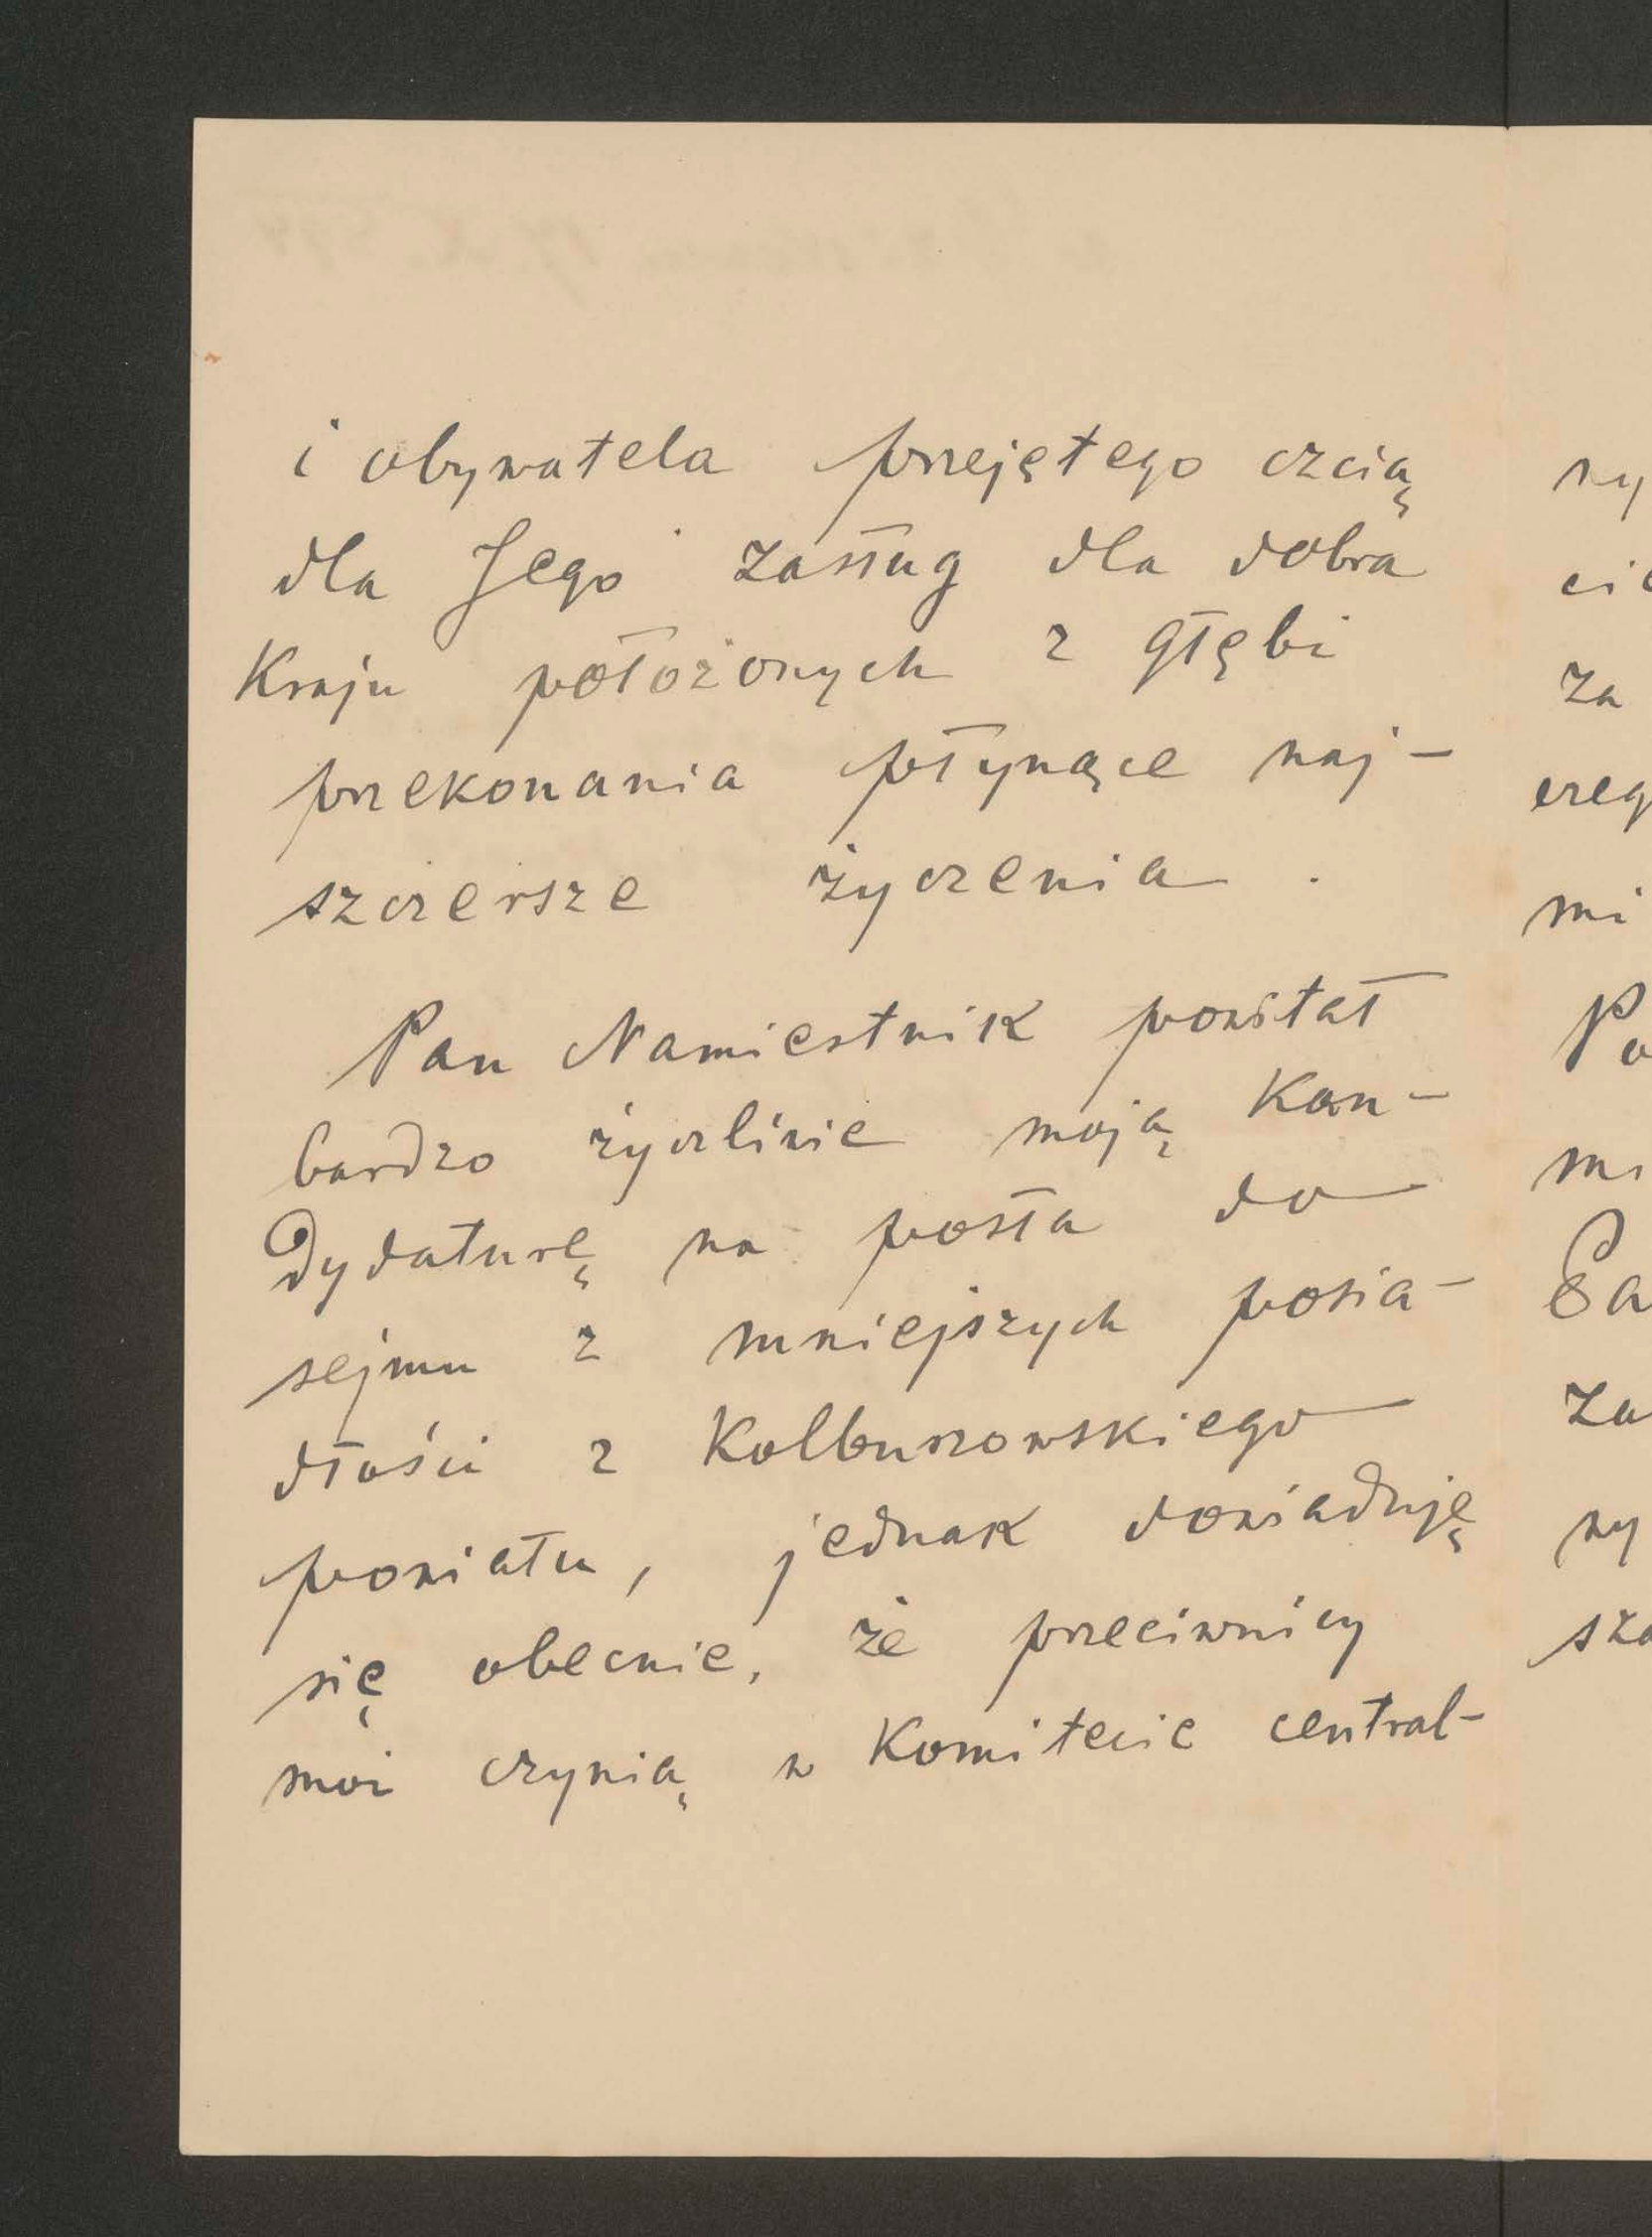 i obywatela przejętego czcią
dla Jego zasług dla dobra
Kraju położonych z głębi
przekonania płynące naj-
szczersze życzenia.
Pan Namiestnik powitał
bardzo życzliwie moją Kan-
dydaturę na posła do
sejmu z mniejszych posia-
dłości z Kolbuszowskiego
powiatu, jednak dowiaduję
się obecnie, że przeciwnicy
moi czynią w Komitecie central-
za
mi